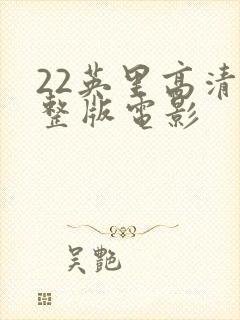 22英里高清
整版电影
吴艷